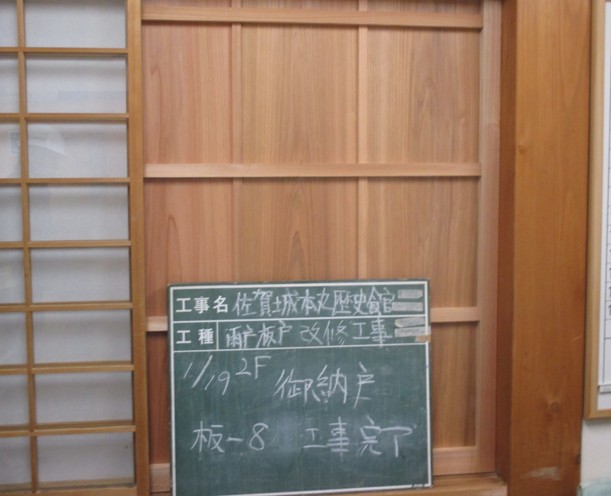 工事名 佐賀城本丸歴史館
工種 雨戸板戸改修工事
1/19 2F 御納戸
板-8 工事完了